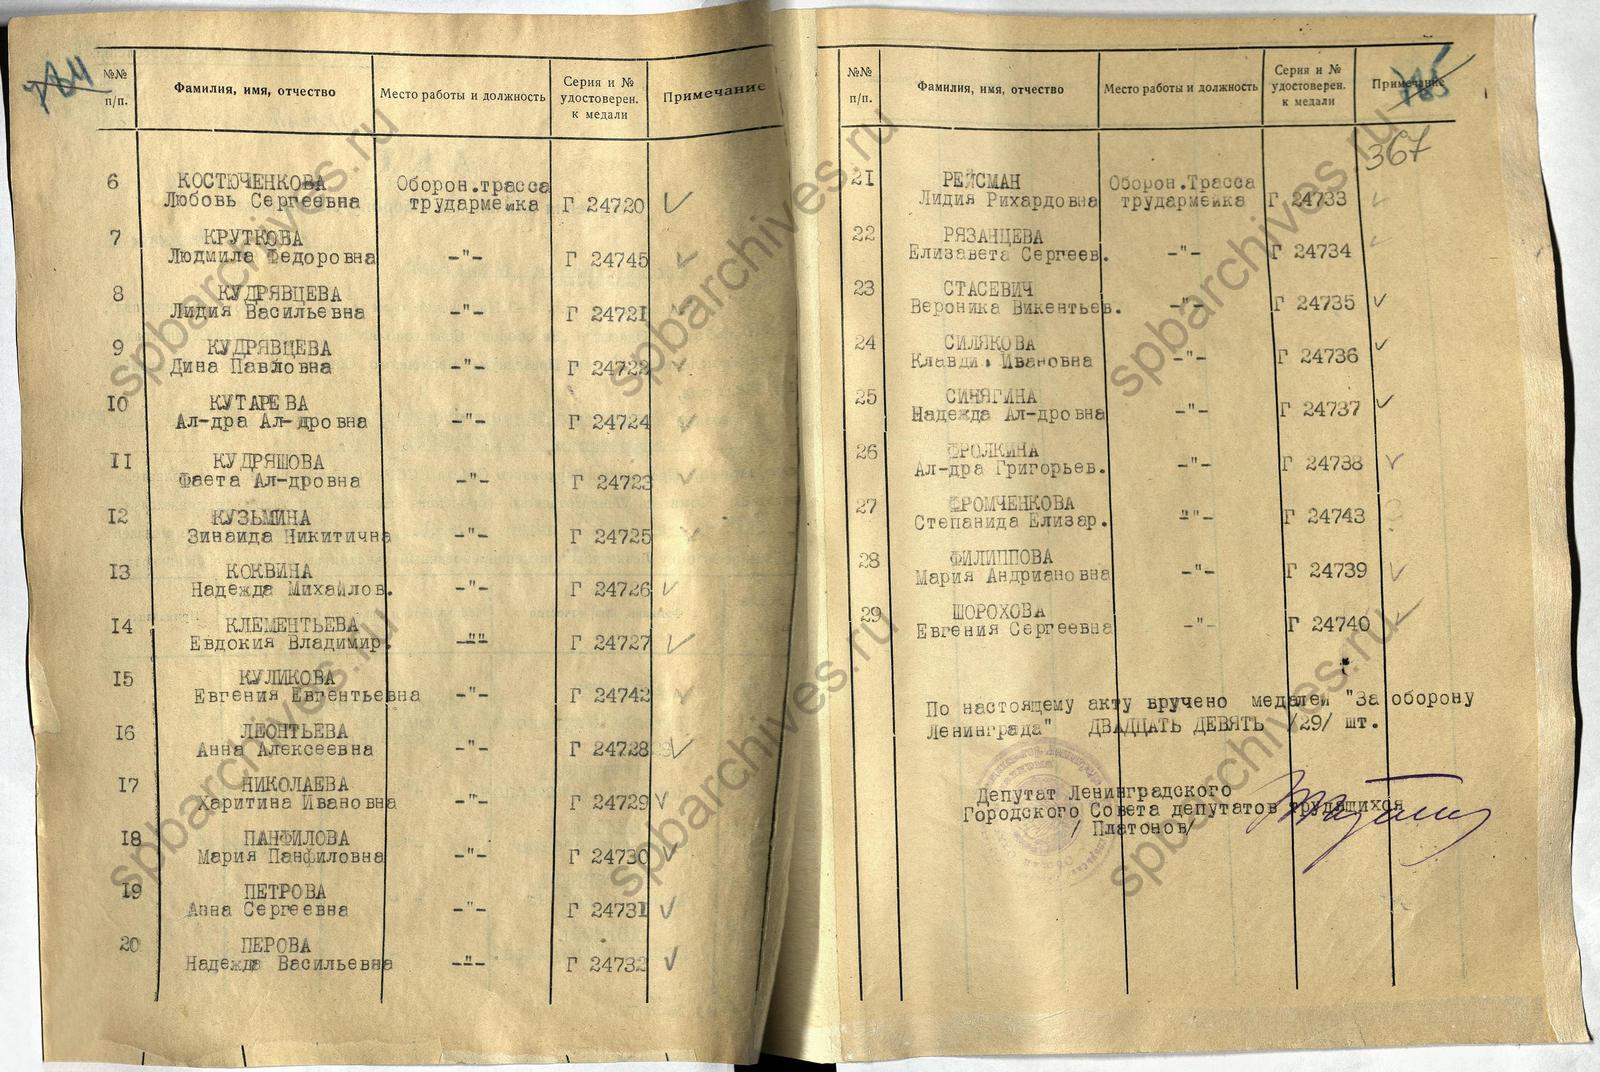 №№ п/п.
Фамилия, имя, отчество
Место работы и должность
Серия и № удостоверен. к медали
Примечание
6 КОСТЮЧЕНКОВА Оборон.трасса
Любовь Сергеевна трудармейка Г 24720
7 КРУТКОВА
Людмила Федоровна -"- Г 24745
8 КУДРЯВЦЕВА
Лидия Васильевна -"- Г 24721
9 КУДРЯВЦЕВА
Дина Павловна -"- Г 24722
10 КУТАРЕВА
Ал-дра Ал-дровна -"- Г 24724
11 КУДРЯШОВА
Фаета Ал-дровна -"- Г 24723
12 КУЗЬМИНА
Зинаида Никитична -"- Г 24725
13 КОКВИНА
Надежда Михайлов. -"- Г 24726
14 КЛЕМЕНТЬЕВА
Евдокия Владимир. -"- Г 24727
15 КУЛИКОВА
Евгения Евгентьевна -"- Г 24742
16 ЛЕОНТЬЕВА
Анна Алексеевна -"- Г 24728
17 НИКОЛАЕВА
Харитина Ивановна -"- Г 24729
18 ПАНФИЛОВА
Мария Панфиловна -"- Г 24730
19 ПЕТРОВА
Анна Сергеевна -"- Г 24731
20 ПЕРОВА
Надежда Васильевна -"- Г 24732
№№ п/п.
Фамилия, имя, отчество
Место работы и должность
Серия и № удостоверен. к медали
Примечание
367
21 РЕЙСМАН Оборон.Трасса
Лидия Рихардовна трудармейка Г 24733
22 РЯЗАНЦЕВА
Елизавета Сергеев. -"- Г 24734
23 СТАСЕВИЧ
Вероника Викентьев. -"- Г 24735
24 СИЛЯКОВА
Клавди. Ивановна -"- Г 24736
25 СИНЯГИНА
Надежда Ал-дровна -"- Г 24737
26 ФРОЛКИНА
Ал-дра Григорьев. -"- Г 24738
27 ФРОМЧЕНКОВА
Степанида Елизар. -"- Г 24743
28 ФИЛИППОВА
Мария Андриановна -"- Г 24739
29 ШОРОХОВА
Евгения Сергеевна -"- Г 24740
По настоящему акту вручено медалей "За оборону
Ленинграда" ДВАДЦАТЬ ДЕВЯТЬ /29/ шт.
Депутат Ленинградского
Городского Совета депутатов трудящихся
/ Платонов/
spbarchives.ru
spbarchives.ru
spbarchives.ru
spbarchives.ru
spbarchives.ru
spbarchives.ru